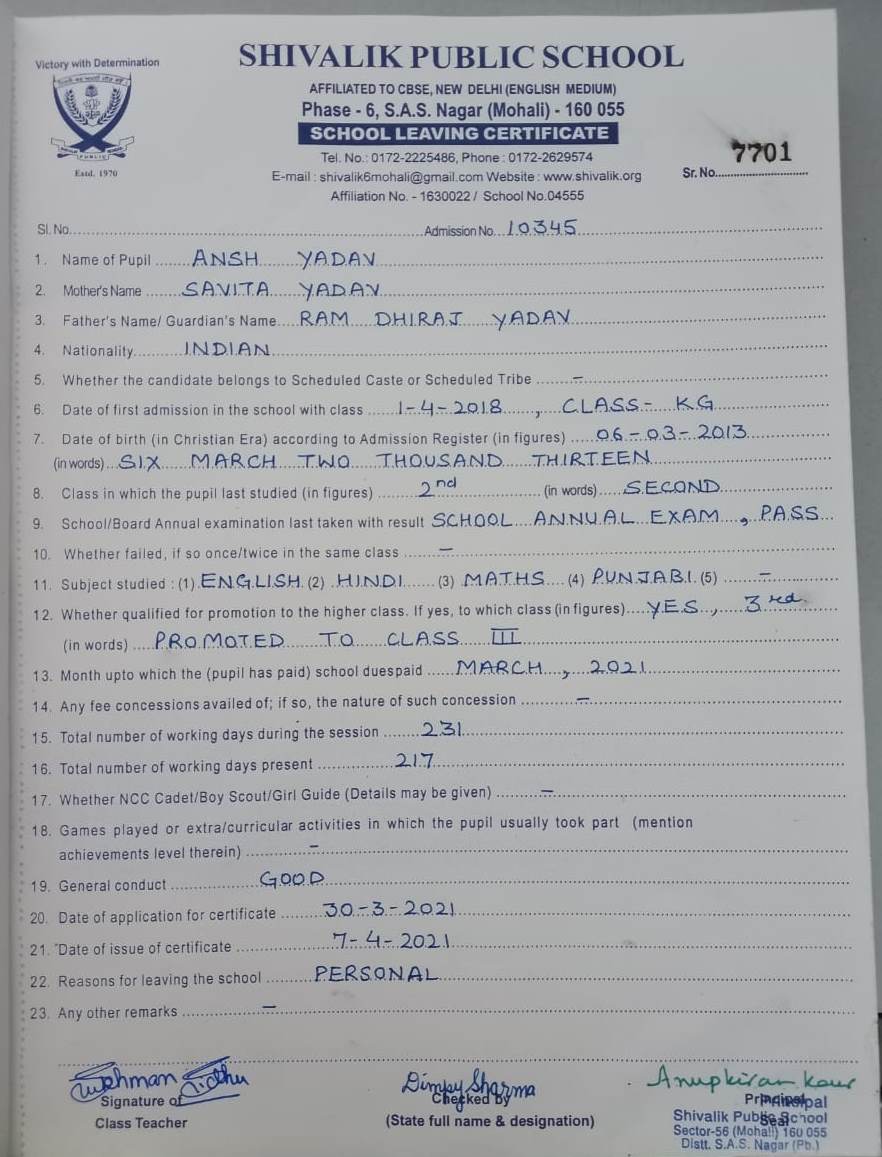 Victory with Determination
SHIVALIK PUBLIC SCHOOL
AFFILIATED TO CBSE, NEW DELHI (ENGLISH MEDIUM)
Phase - 6, S.A.S. Nagar (Mohali) - 160 055
SCHOOL LEAVING CERTIFICATE
Tel. No.: 0172-2225486, Phone : 0172-2629574
E-mail : shivalik6mohali@gmail.com Website : www.shivalik.org
Affiliation No. - 1630022 / School No.04555
PUBLIC
Estd. 1970
Sr. No. 7701
Sl. No. Admission No. 10345
1. Name of Pupil ANSH YADAV
2. Mother's Name SAVITA YADAV
3. Father's Name/ Guardian's Name RAM DHIRAJ YADAV
4. Nationality INDIAN
5. Whether the candidate belongs to Scheduled Caste or Scheduled Tribe –
6. Date of first admission in the school with class 1-4-2018, CLASS- KG
7. Date of birth (in Christian Era) according to Admission Register (in figures) 06-03-2013
(in words) SIX MARCH TWO THOUSAND THIRTEEN
8. Class in which the pupil last studied (in figures) 2nd (in words) SECOND
9. School/Board Annual examination last taken with result SCHOOL ANNUAL EXAM, PASS
10. Whether failed, if so once/twice in the same class –
11. Subject studied : (1) ENGLISH (2) HINDI (3) MATHS (4) PUNJABI (5) –
12. Whether qualified for promotion to the higher class. If yes, to which class (in figures) YES, 3rd
(in words) PROMOTED TO CLASS III
13. Month upto which the (pupil has paid) school duespaid MARCH, 2021
14. Any fee concessions availed of; if so, the nature of such concession –
15. Total number of working days during the session 231
16. Total number of working days present 217
17. Whether NCC Cadet/Boy Scout/Girl Guide (Details may be given) –
18. Games played or extra/curricular activities in which the pupil usually took part (mention
achievements level therein) –
19. General conduct GOOD
20. Date of application for certificate 30-3-2021
21. Date of issue of certificate 7-4-2021
22. Reasons for leaving the school PERSONAL
23. Any other remarks –
Sidhu
Signature of
Class Teacher
Dimpy Sharma
Checked by
(State full name & designation)
Anupkiran Kaur
Principal
Seal
Principal
Shivalik Public School
Sector-56 (Mohali) 160 055
Distt. S.A.S. Nagar (Pb.)